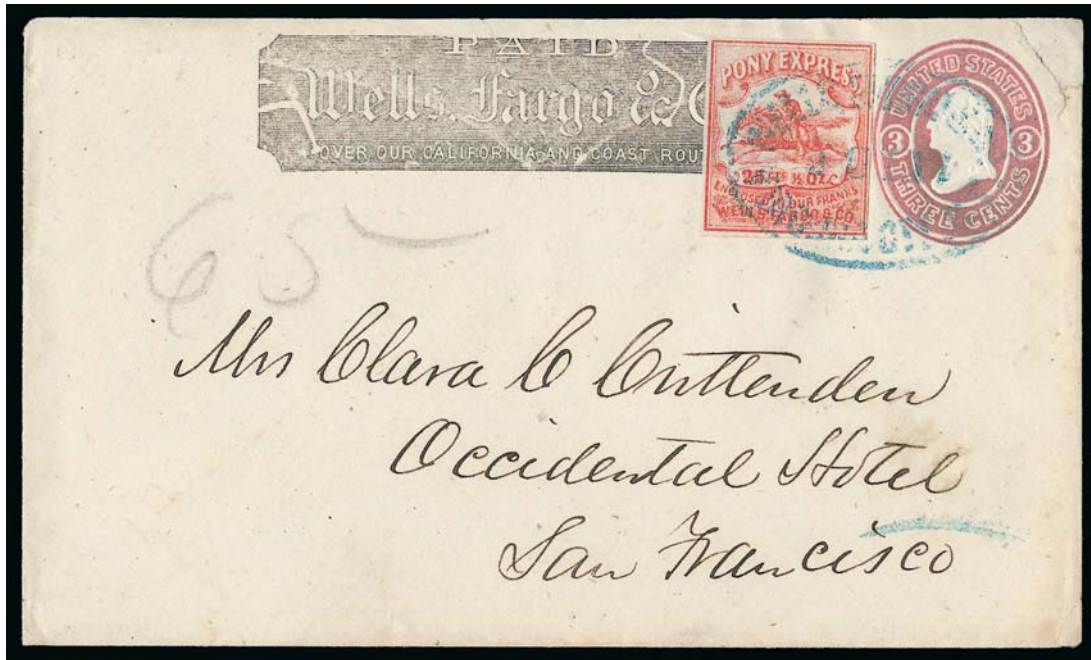 PAID
Wells, Fargo &
OVER OUR CALIFORNIA AND COAST ROUT
PONY EXPRESS
25 Cts ½ OZ
ENCLOSED IN OUR FRANKS
WELLS FARGO & CO.
UNITED STATES
3 3
THREE CENTS
65
Mrs Clara C Crittenden
Occidental Hotel
San Francisco